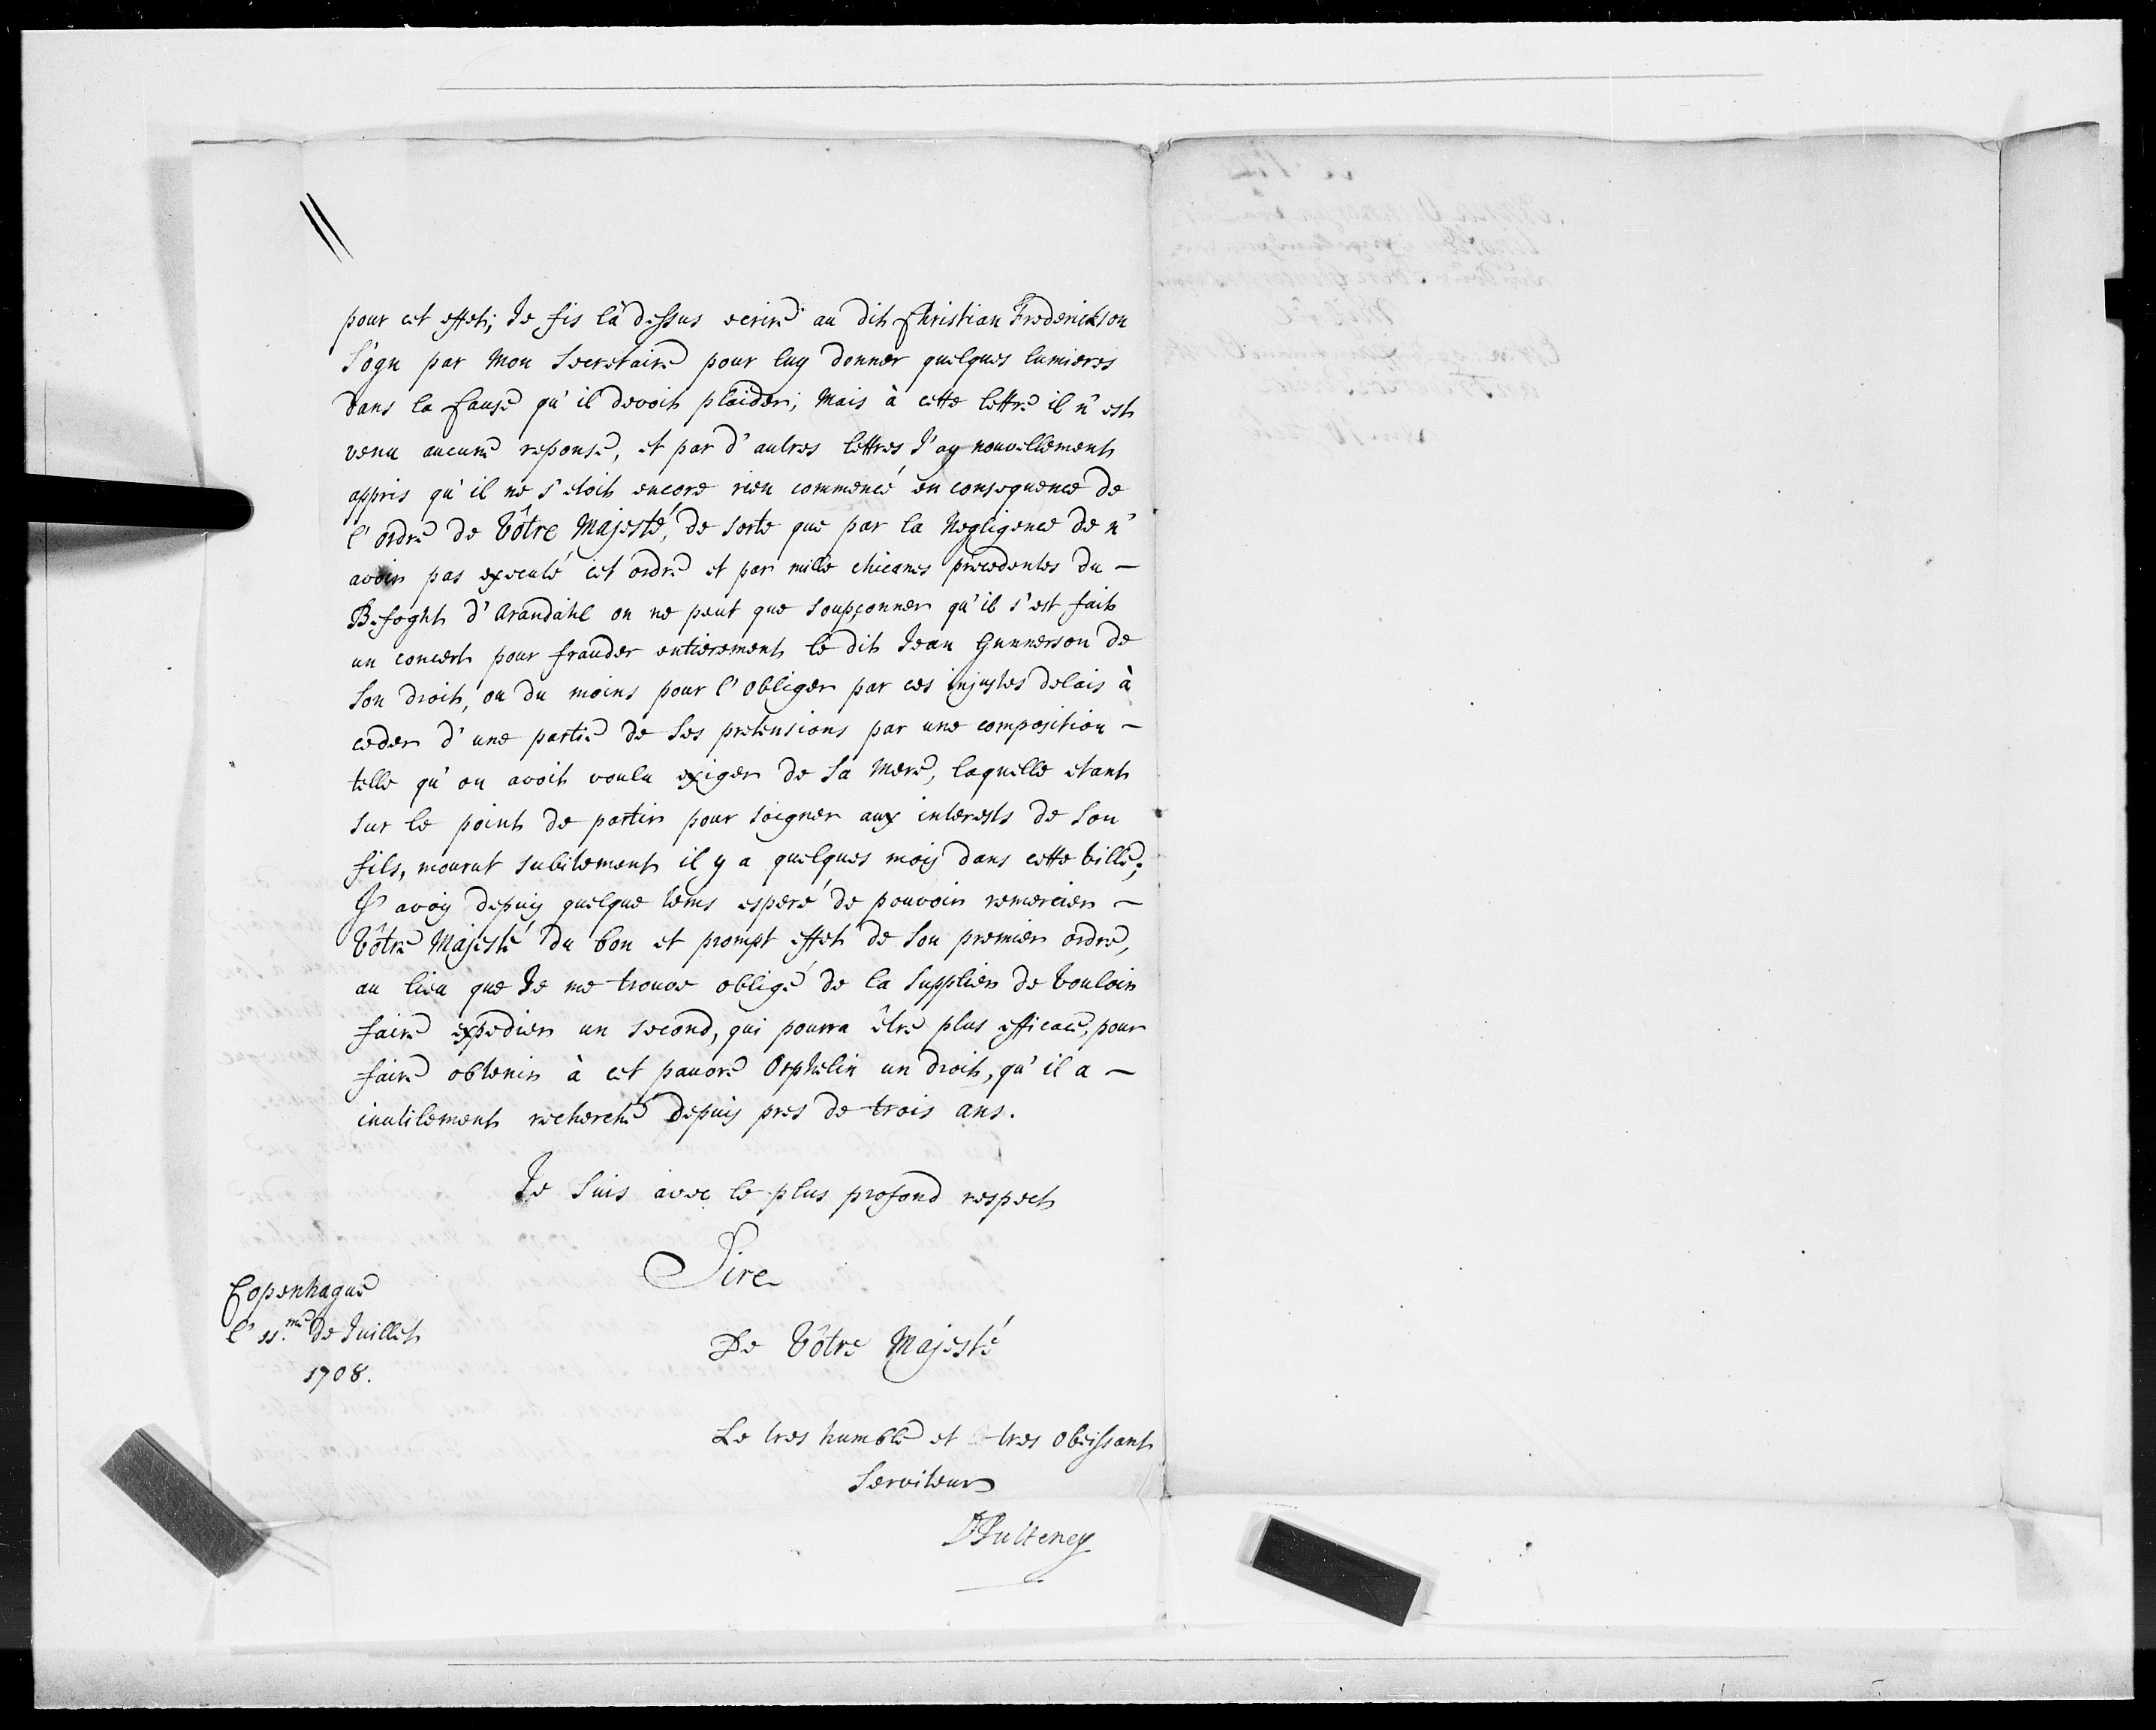 pour cet effet; Je fis là dessus ecrire au dit Christian Frederickson
Sögn par Mon Secretaire pour luy donner quelques lumieres
dans la Cause qu'il devoit plaider; Mais à cette lettre il n'est
venu aucune reponse, et par d'autres lettres J'ay nouvellement
appris qu'il ne s'etoit encore rien commencé en consequence de
l'ordre de Vôtre Majesté, de sorte que par la Negligence de n'
avoir pas executé cet ordre et par mille chicanes precedentes du —
Befoght d'Arandahl on ne peut que soupçonner qu'il s'est fait
un concert pour frauder entierement le dit Jean Gunnerson de
Son droit, ou du moins pour l'obliger par ces injustes delais à
ceder d'une partie de Ses pretensions par une composition —
telle qu'on avoit voulu exiger de Sa Mere, laquelle etant
sur le point de partir pour soigner aux interests de Son
fils, mourut subitement il y a quelques mois dans cette Ville;
J'avois depuis quelque tems esperé de pouvoir remercier —
Vôtre Majesté du bon et prompt effet de Son premier ordre,
au lieu que Je me trouve obligé de la Supplier de Vouloir
faire expedier un second, qui pourra être plus efficace, pour
faire obtenir à cet pauvre Orphelin un droit, qu'il a —
inutilement recherché depuis pres de trois ans.
Je Suis avec le plus profond respect
Sire
Copenhague
l'11.me de Juillet
1708.
De Vôtre Majesté
Le tres humble et tres obeissant
Serviteur
DPulteney